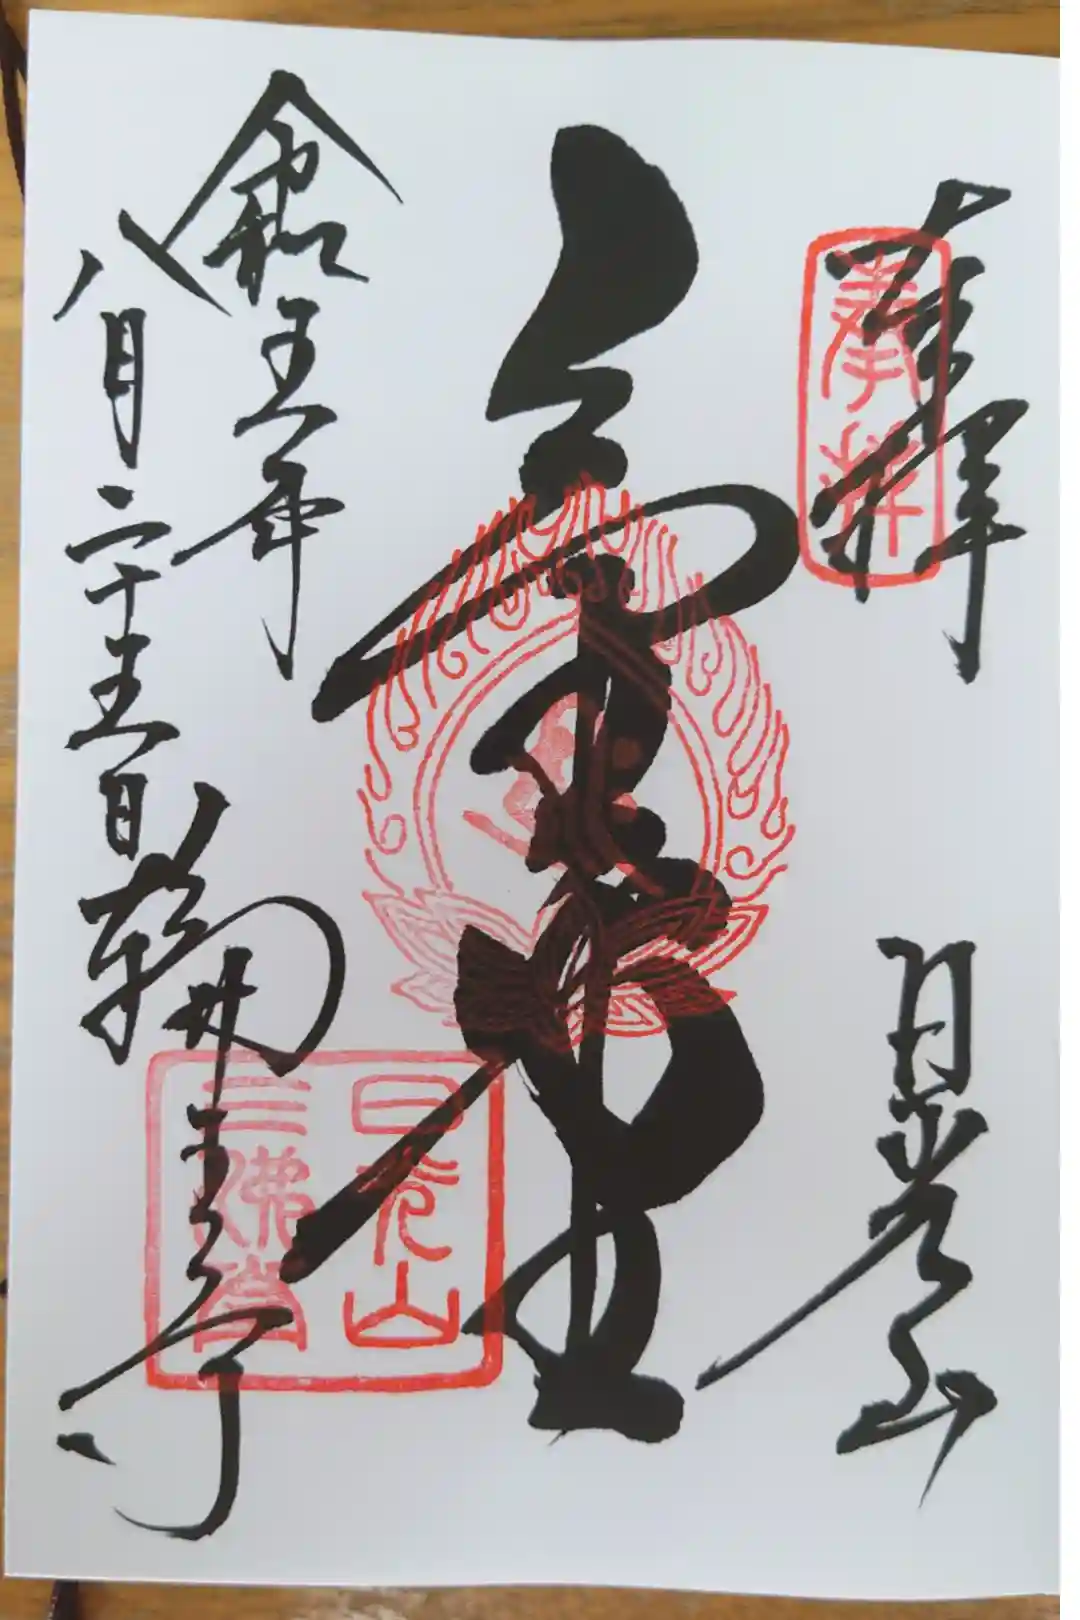 奉拝
日光山
奉拝
金堂
日光山
三佛堂
令和五年
八月二十五日
輪王寺